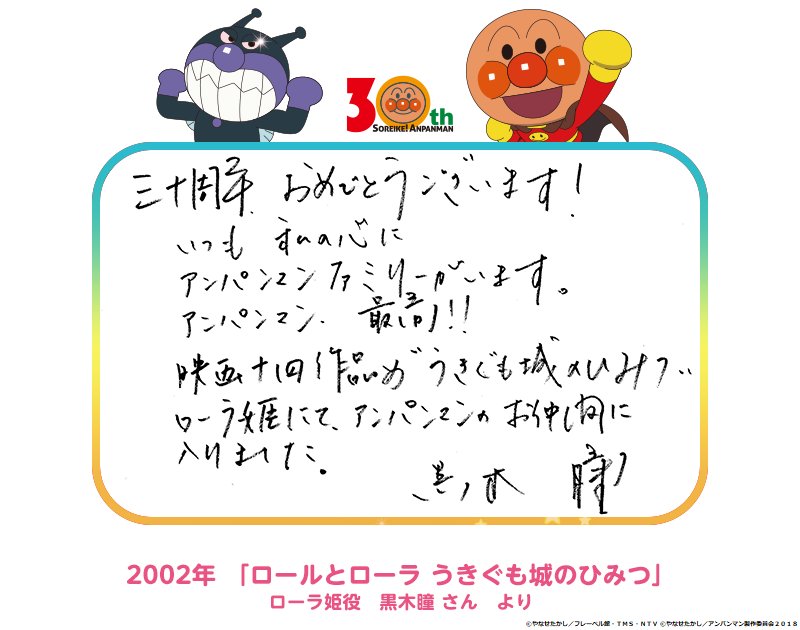 30th
SOREIKE! ANPANMAN
三十周年、おめでとうございます!
いつも 私の心に
アンパンマンファミリーがいます。
アンパンマン、最高!!
映画十四作品め「うきぐも城のひみつ」
ローラ姫にて、アンパンマンのお仲間に
入りました。
黒木 瞳
2002年 「ロールとローラ うきぐも城のひみつ」
ローラ姫役 黒木瞳 さん より
©やなせたかし/フレーベル館・TMS・NTV ©やなせたかし/アンパンマン製作委員会2018